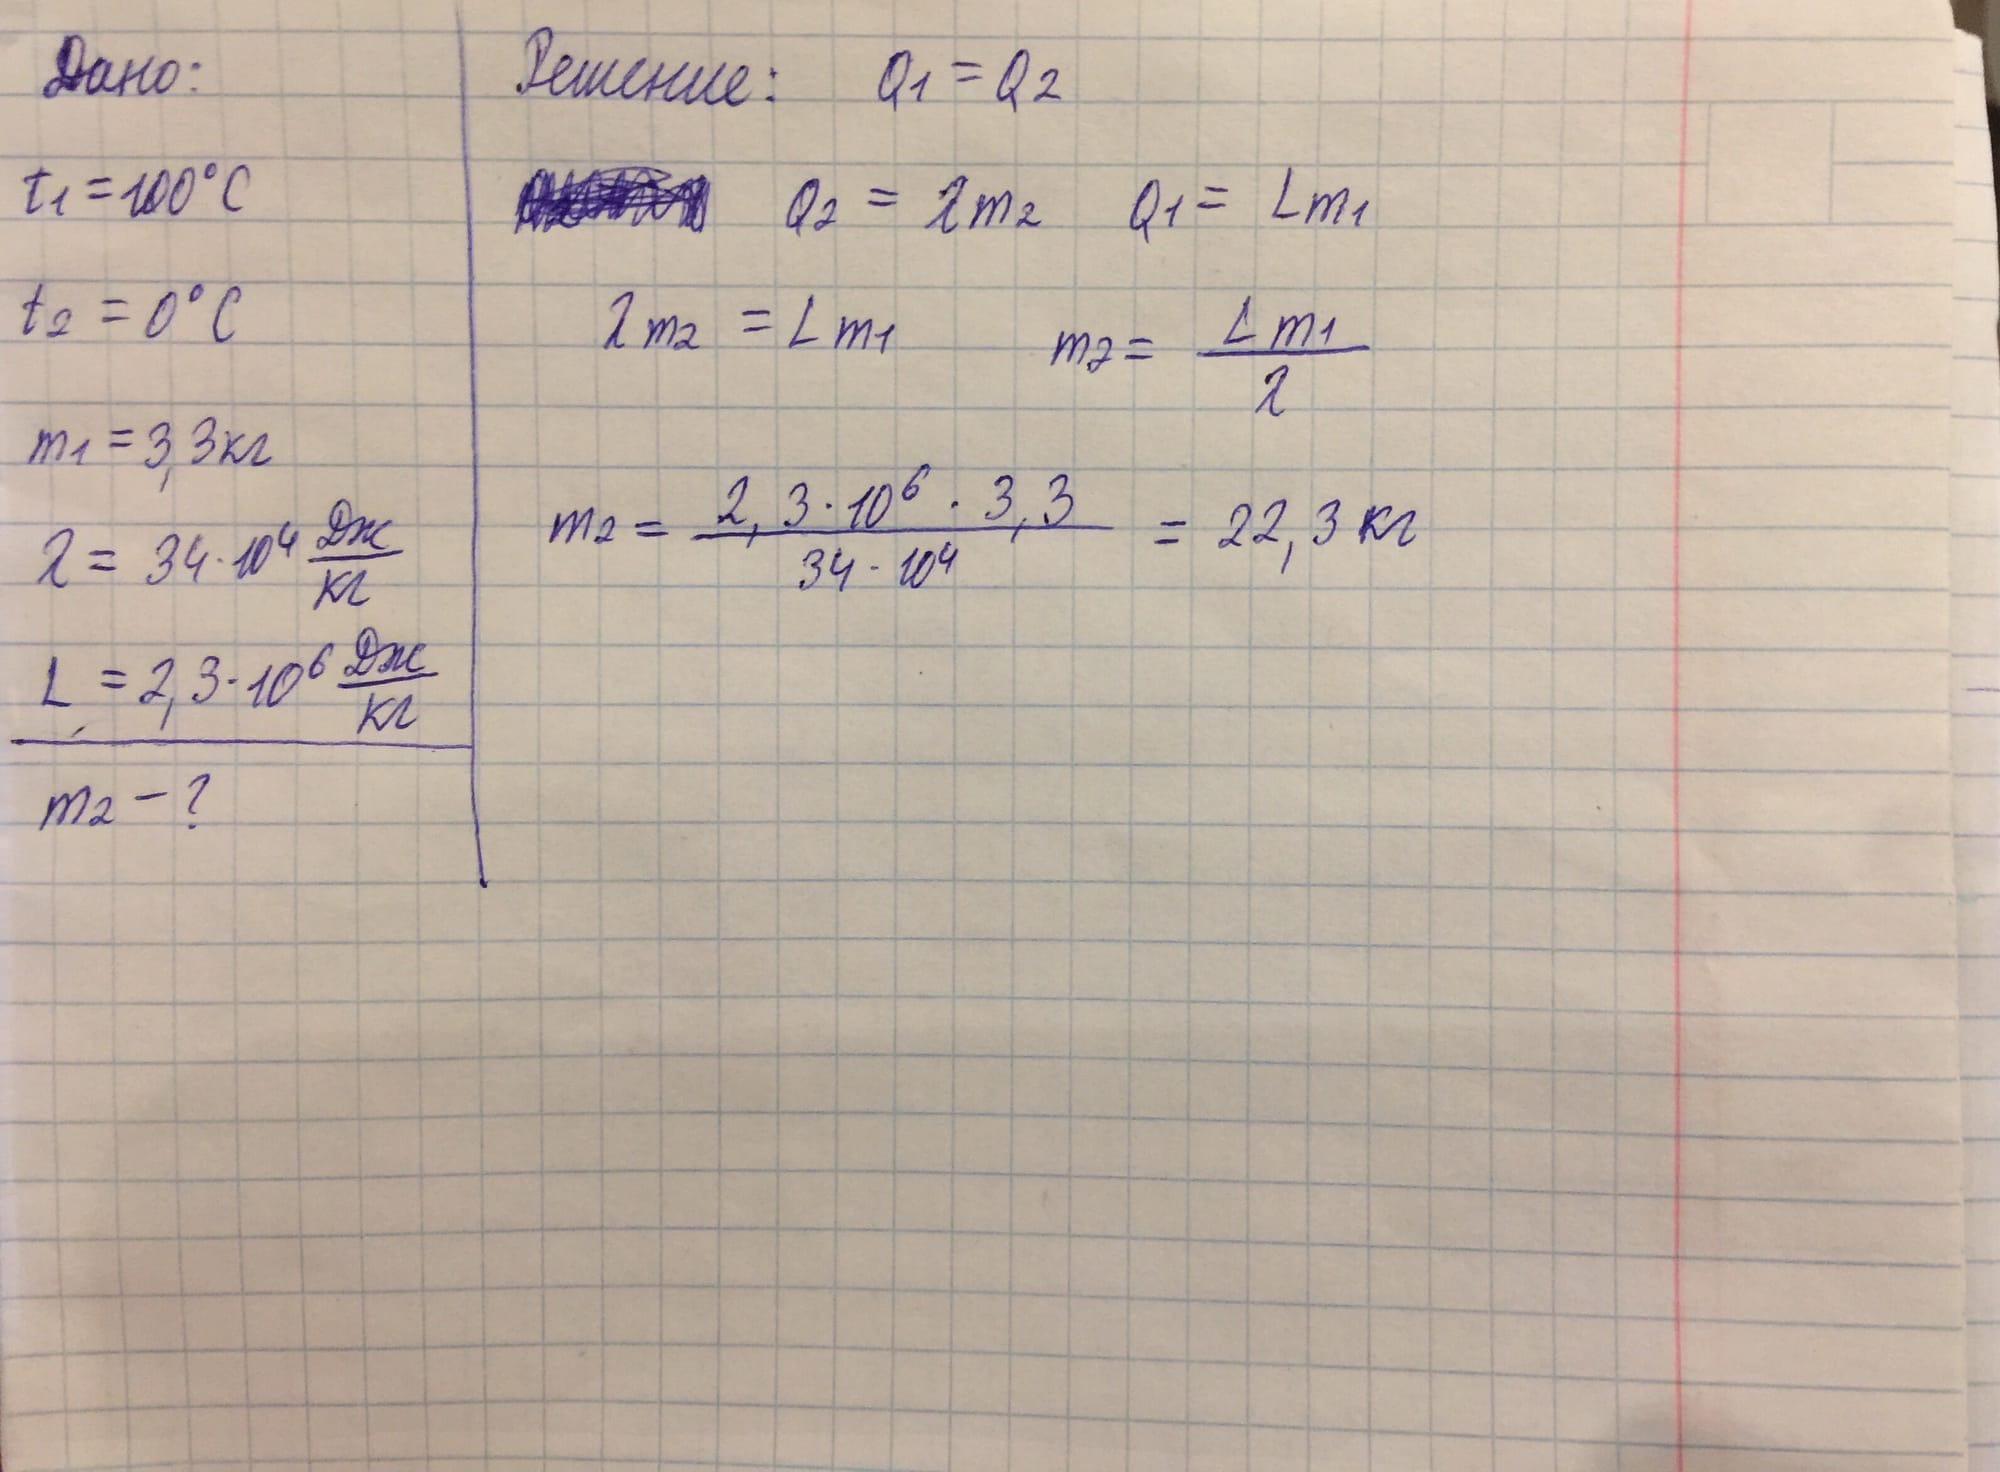 Дано:
t1 = 100°C
t2 = 0°C
m1 = 3,3 кг
λ = 34·10⁴ Дж/кг
L = 2,3·10⁶ Дж/кг
m2 – ?
Решение: Q1 = Q2
Q2 = λm2 Q1 = Lm1
λm2 = Lm1 m2 = Lm1/λ
m2 = 2,3·10⁶·3,3/34·10⁴ = 22,3 кг